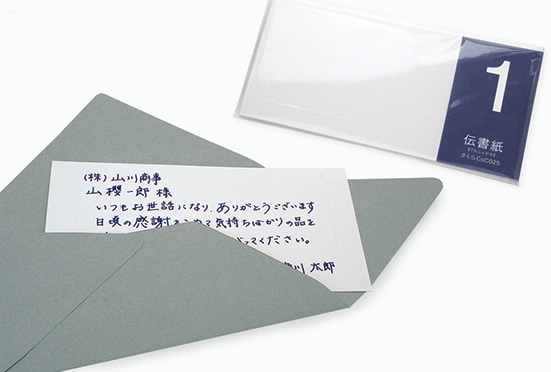 (株)山川商事
山櫻一郎様
いつもお世話になり、ありがとうございます
日頃の感謝をこめて気持ちばかりの品を
ってください。
川 太郎
1
伝書紙
【でんしょがみ】
さくらCoC025